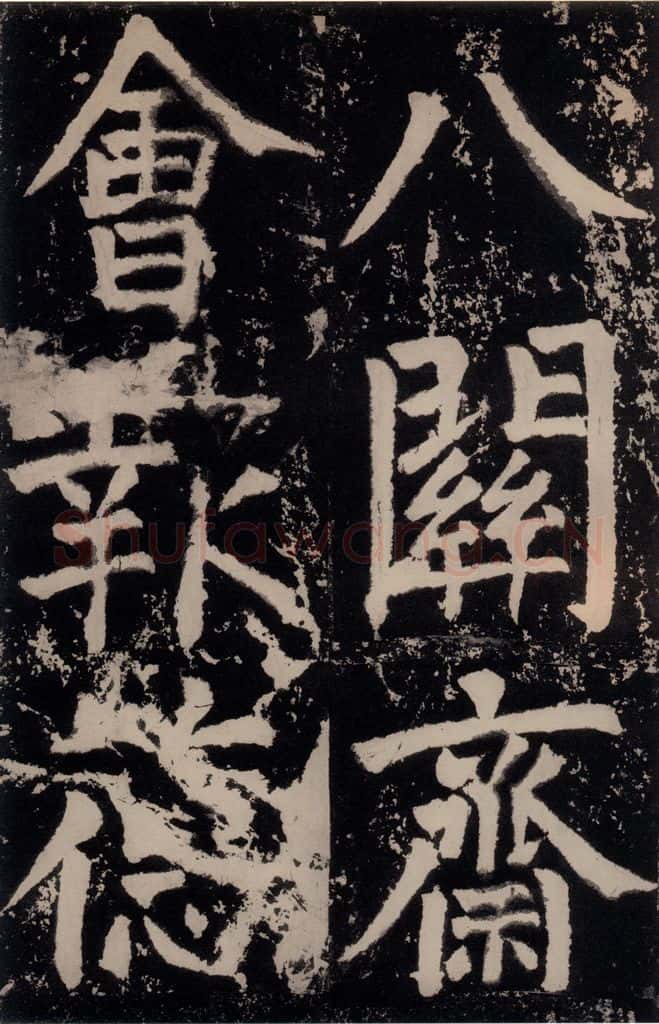 八關齋
會報德
Shufawang.CN